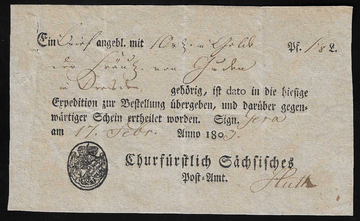 Ein Brief angebl. mit 10 rt. Pf. 18 L.
der von
in Dresden gehörig, ist dato in die hiesige
Expedition zur Bestellung übergeben, und darüber gegen-
wärtiger Schein ertheilet worden. Sign. Gera
am 17. Febr. Anno 1803.
Churfürstlich Sächsisches
Post-Amt.